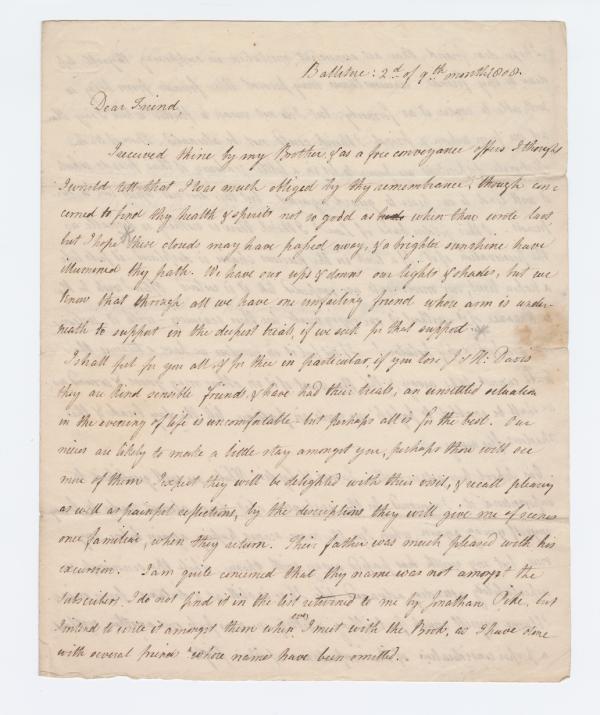 Ballitore: 2d of 9th month 1808.
Dear Friend,
I received thine by my Brother, & as a free conveyance offers I thought
I would tell that I was much obliged by thy remembrance: though con-
cerned to find thy health & spirits not so good as when thou wrote last,
but I hope these clouds may have passed away, & a brighter sunshine have
illumined thy path. We have our ups & downs our lights & shades, but we
know that through all we have one unfailing friend whose arm is under-
neath to support in the deepest trials, if we seek for that support.
I shall feel for you all, & for thee in particular, if you lose J & M: Davis
they are kind sensible friends, & have had their trials, an unsettled situation
in the evening of life is uncomfortable - but perhaps all is for the best. Our
nieces are likely to make a little stay amongst you, perhaps thou will see
more of them I expect they will be delighted with their visit, & recall pleasing
as well as painful reflections, by the descriptions they will give me of scenes
once familiar, when they return. Their father was much pleased with his
excursion. I am quite concerned that thy name was not amongst the
subscribers. I do not find it in the list returned to me by Jonathan Pike, but
I intend to write it amongst them when ever I meet with the Book, as I have done
with several friends whose names have been omitted.